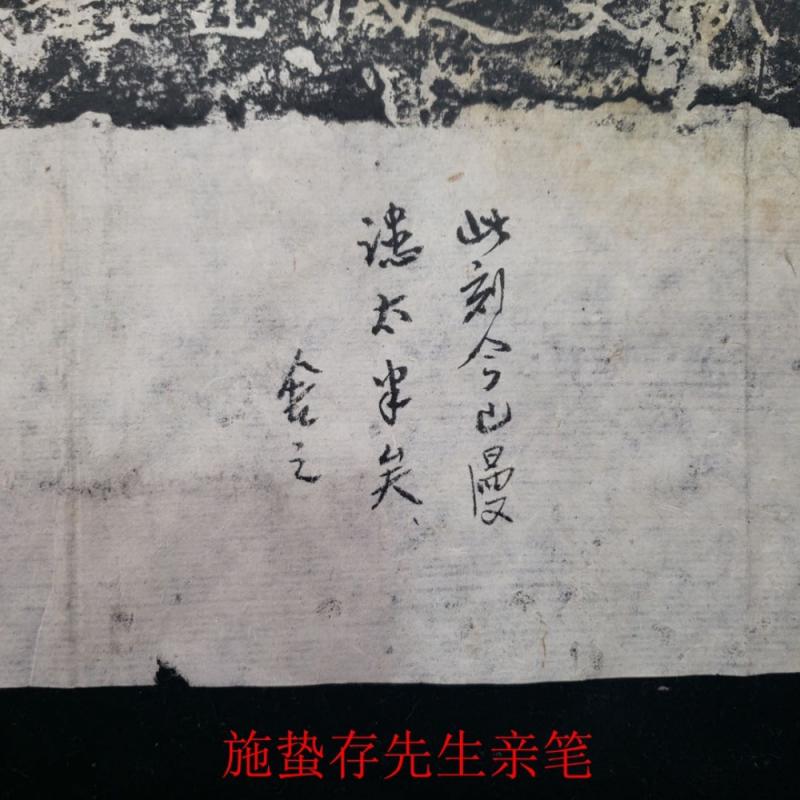 此刻今已漫
漶太半矣、
舍之
施蛰存先生亲笔